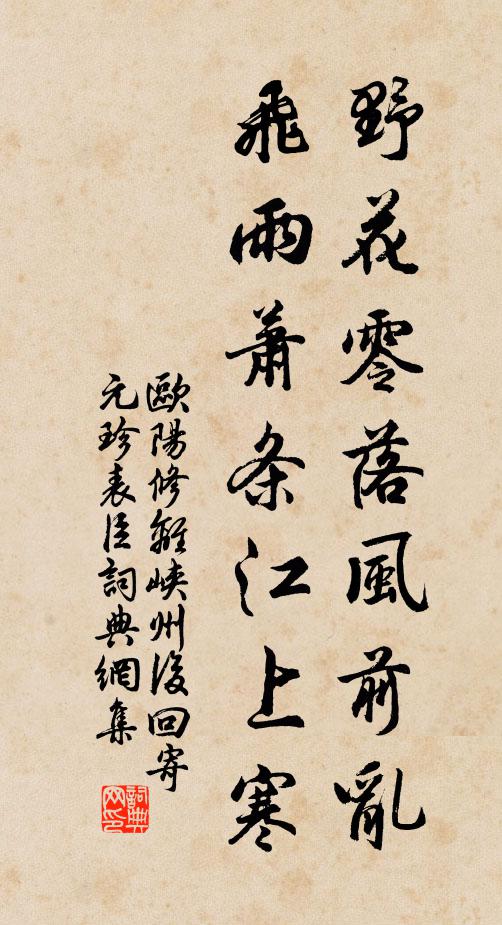 野花零落風前亂
飛雨蕭条江上寒
歐陽修離峽州後回寄
元珍表臣詞典網集
詞典网印